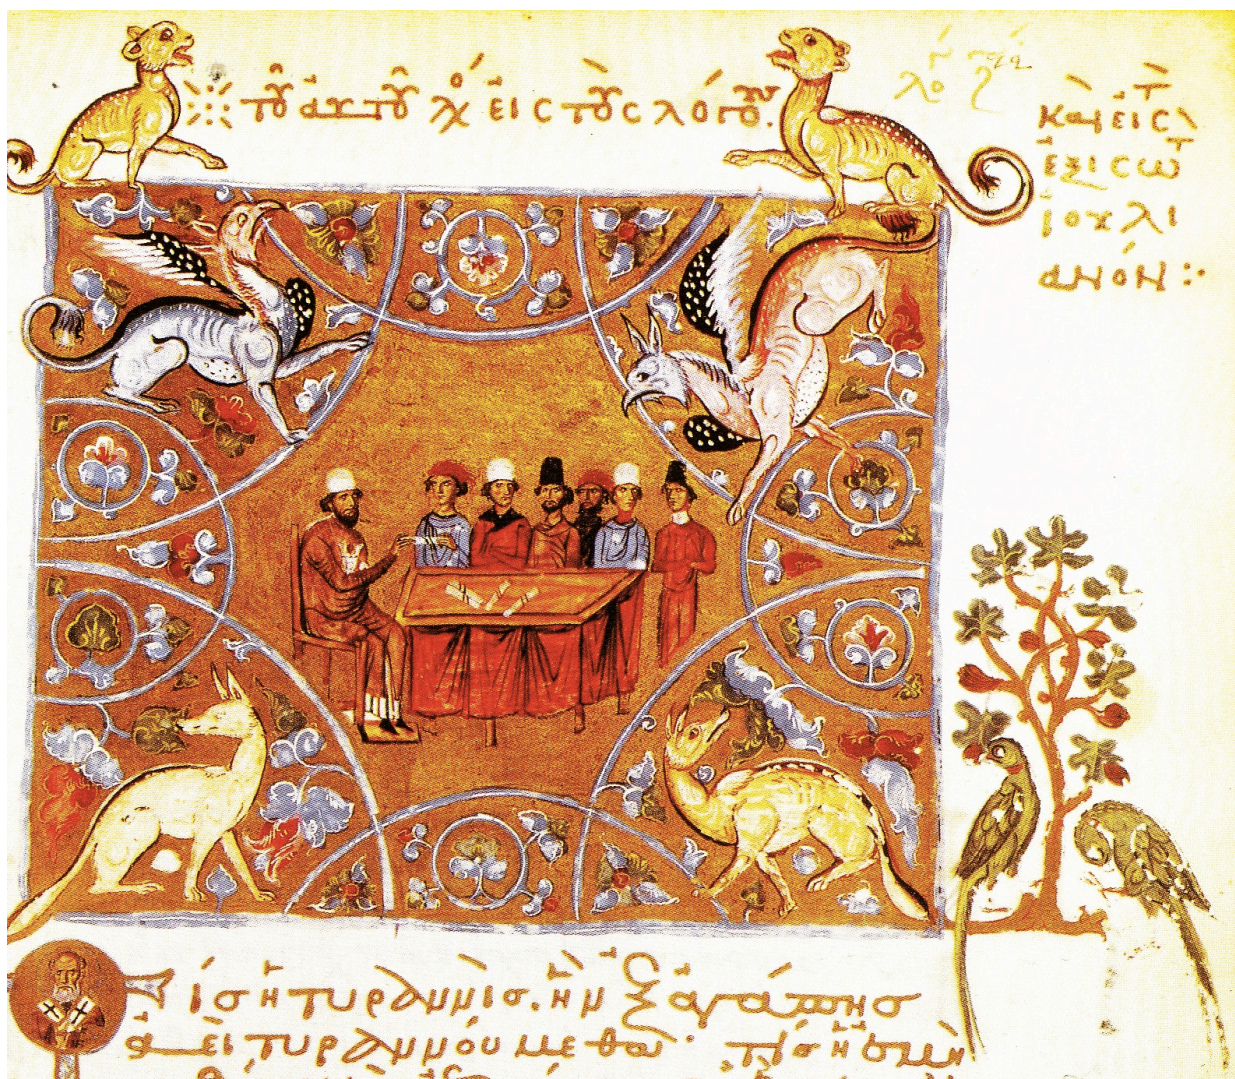 τοῦ αὐτοῦ λόγος εἰς τοὺς λόγους
καὶ εἰς τ
ἐξισωτ
ἰουλι
ανόν :·
Τίς ἡ τυραννὶς· ἣν ἐξ ἀγάπης
ἀεὶ τυραννούμεθα· τίς ἡ